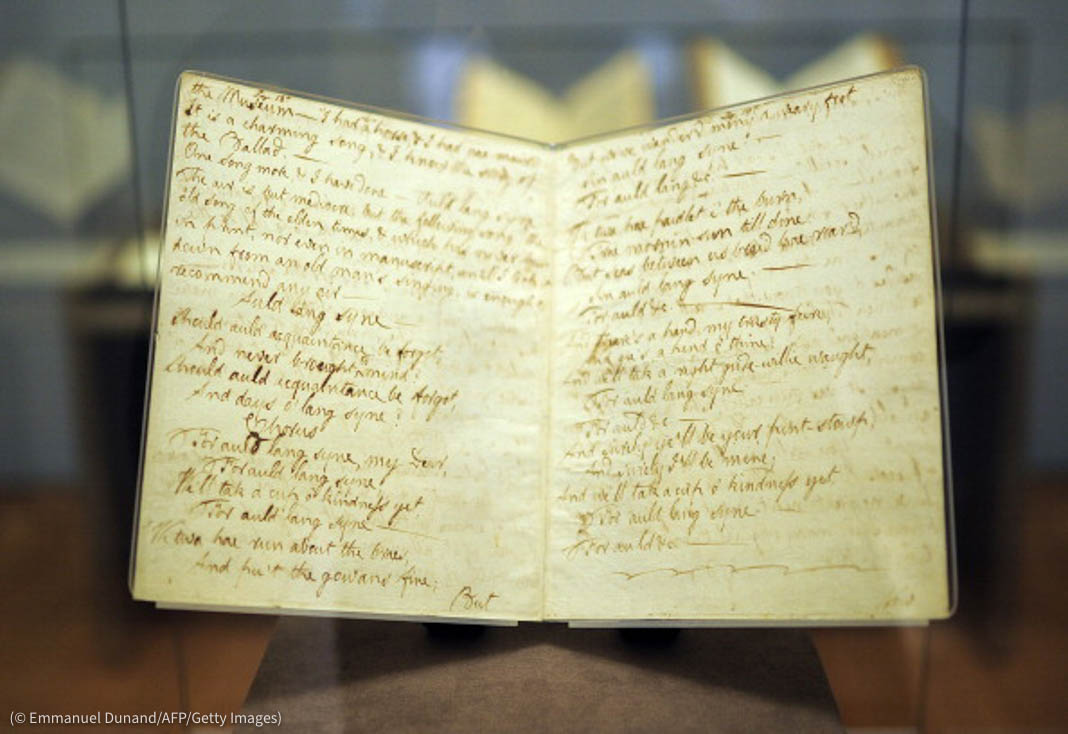 the Museum — I had a horse & I had nae mair,
It is a charming song, & I know the story of
the Ballad. —
One song more & I have done — Auld lang syne
The air is but mediocre; but the following song, the
old song of the olden times, & which has never been
in print, nor even in manuscript, until I took it
down from an old man's singing; is enough to
recommend any air —
Auld lang syne —
Should auld acquaintance be forgot,
And never brought to mind?
Should auld acquaintance be forgot,
And days o' lang syne?
Chorus
For auld lang syne, my Dear,
For auld lang syne,
We'll tak a cup o' kindness yet
For auld lang syne —
We twa hae run about the braes,
And pu't the gowans fine;
But
But we've wander'd mony a weary foot
Sin auld lang syne. —
For auld lang &c —
We twa hae paidl't i' the burn,
Frae mornin sun till dine
But seas between us braid hae roar'd,
Sin auld lang syne. —
For auld &c. —
there's a hand, my trusty fiere,
And gie's a hand o' thine;
And we'll tak a right gude-willie waught,
For auld lang syne
For auld &c —
And surely ye'll be your pint-stowp,
And surely I'll be mine;
And we'll tak a cup o' kindness yet
For auld lang syne
For auld &c —
(© Emmanuel Dunand/AFP/Getty Images)